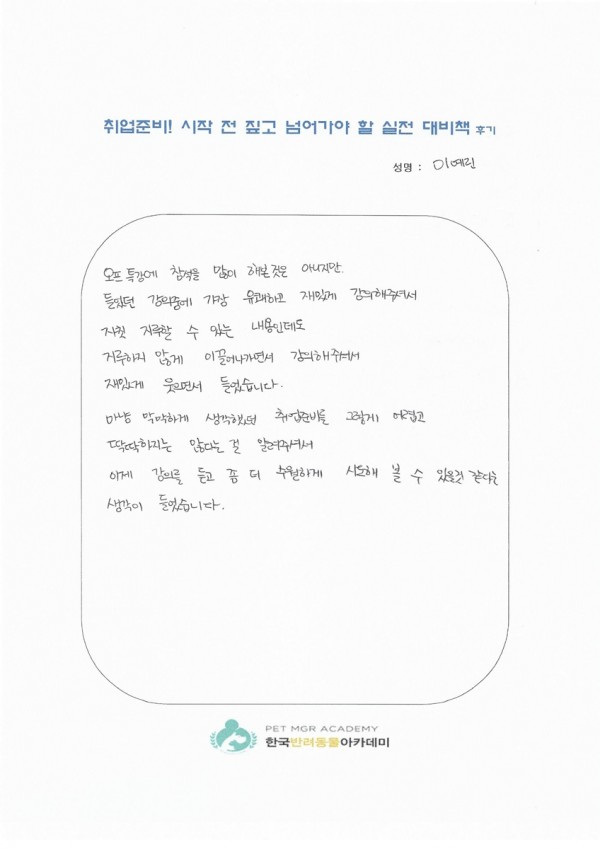 취업준비! 시작 전 짚고 넘어가야 할 실전 대비책 후기
성명 : 이예린
오프 특강에 참석을 많이 해본 것은 아니지만.
들었던 강의중에 가장 유쾌하고 재밌게 강의해주셔서
자칫 지루할 수 있는 내용인데도
지루하지 않게 이끌어나가면서 강의해주셔서
재밌게 웃으면서 들었습니다.
마냥 막막하게 생각했던 취업준비를 그렇게 어렵고
딱딱하지는 않다는 걸 알려주셔서
이게 강의를 듣고 좀 더 수월하게 시도해 볼 수 있을것 같다는
생각이 들었습니다.
PET MGR ACADEMY
한국반려동물아카데미